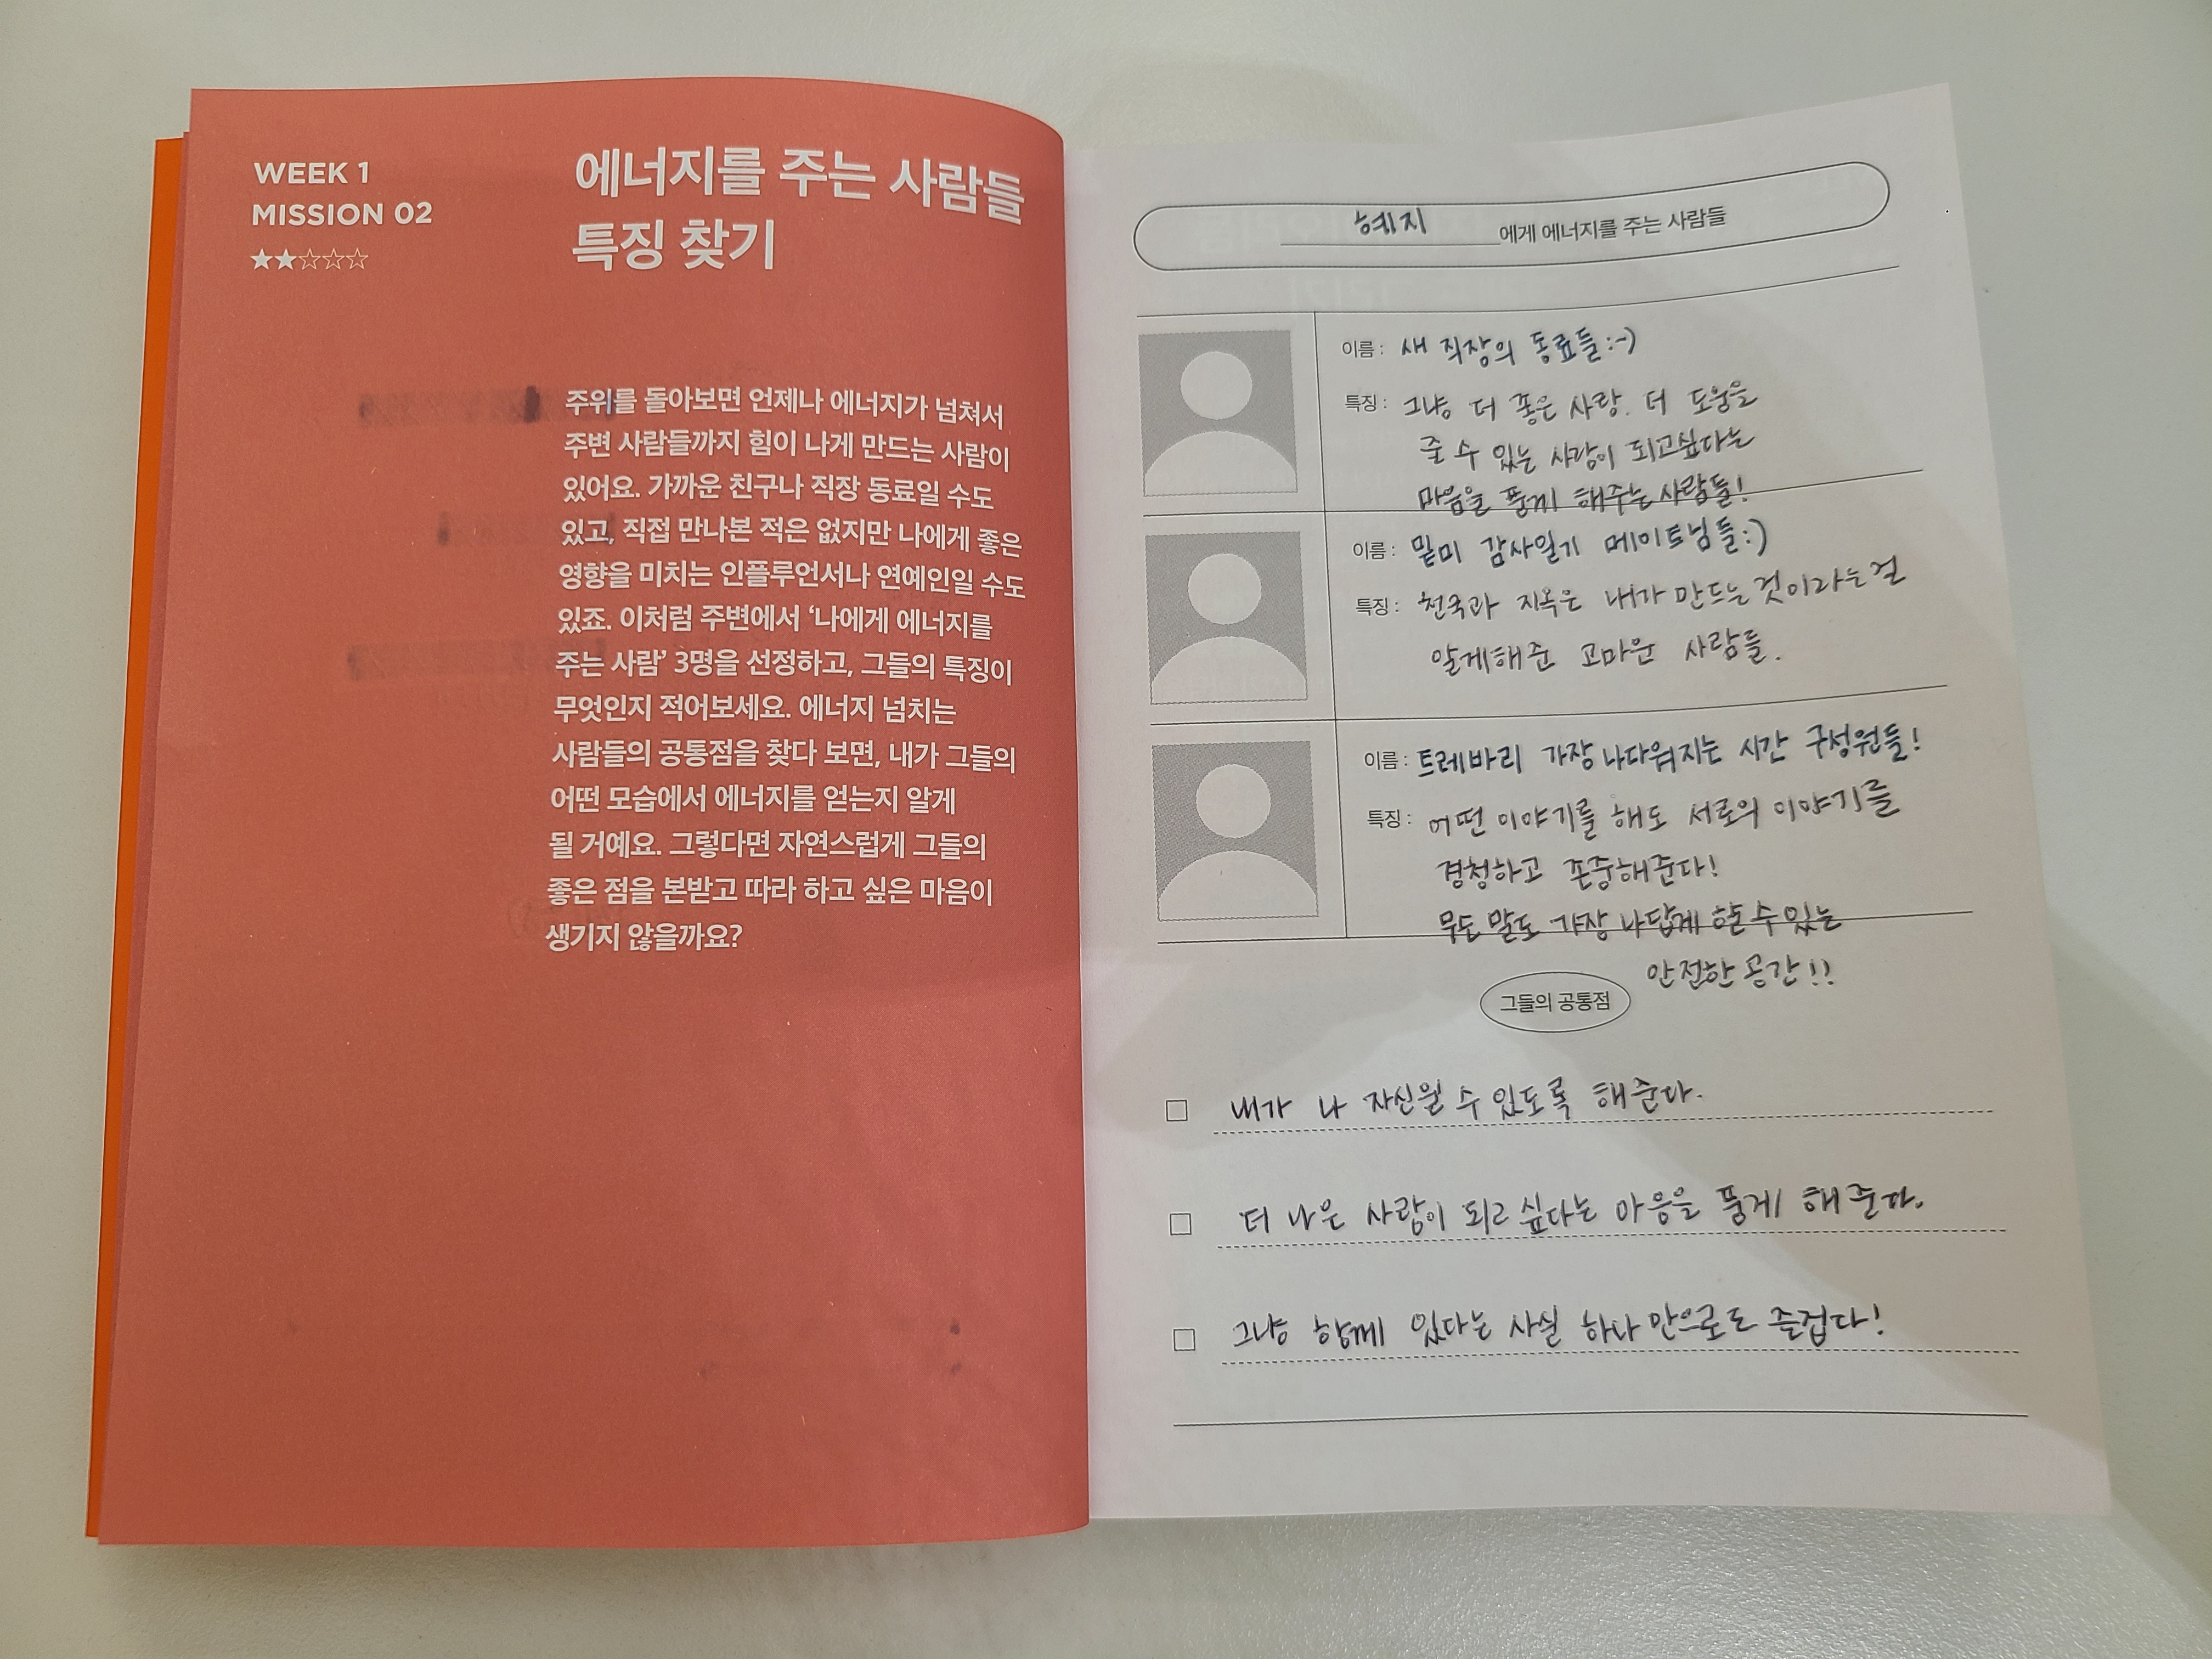 WEEK 1
MISSION 02
★★☆☆☆
에너지를 주는 사람들
특징 찾기
주위를 돌아보면 언제나 에너지가 넘쳐서
주변 사람들까지 힘이 나게 만드는 사람이
있어요. 가까운 친구나 직장 동료일 수도
있고, 직접 만나본 적은 없지만 나에게 좋은
영향을 미치는 인플루언서나 연예인일 수도
있죠. 이처럼 주변에서 ‘나에게 에너지를
주는 사람’ 3명을 선정하고, 그들의 특징이
무엇인지 적어보세요. 에너지 넘치는
사람들의 공통점을 찾다 보면, 내가 그들의
어떤 모습에서 에너지를 얻는지 알게
될 거예요. 그렇다면 자연스럽게 그들의
좋은 점을 본받고 따라 하고 싶은 마음이
생기지 않을까요?
혜지 에게 에너지를 주는 사람들
이름 : 새 직장의 동료들:-)
특징 : 그냥 더 좋은 사람. 더 도움을
줄 수 있는 사람이 되고싶다는
마음을 품게 해주는 사람들!
이름 : 밑미 감사일기 메이트님들:)
특징 : 천국과 지옥은 내가 만드는 것이라는걸
알게해준 고마운 사람들.
이름 : 트레바리 가장 나다워지는 시간 구성원들!
특징 : 어떤 이야기를 해도 서로의 이야기를
경청하고 존중해준다!
무슨 말도 가장 나답게 할 수 있는
안전한 공간!!
그들의 공통점
내가 나 자신일 수 있도록 해준다.
더 나은 사람이 되고 싶다는 마음을 품게 해준다.
그냥 함께 있다는 사실 하나 만으로도 즐겁다!